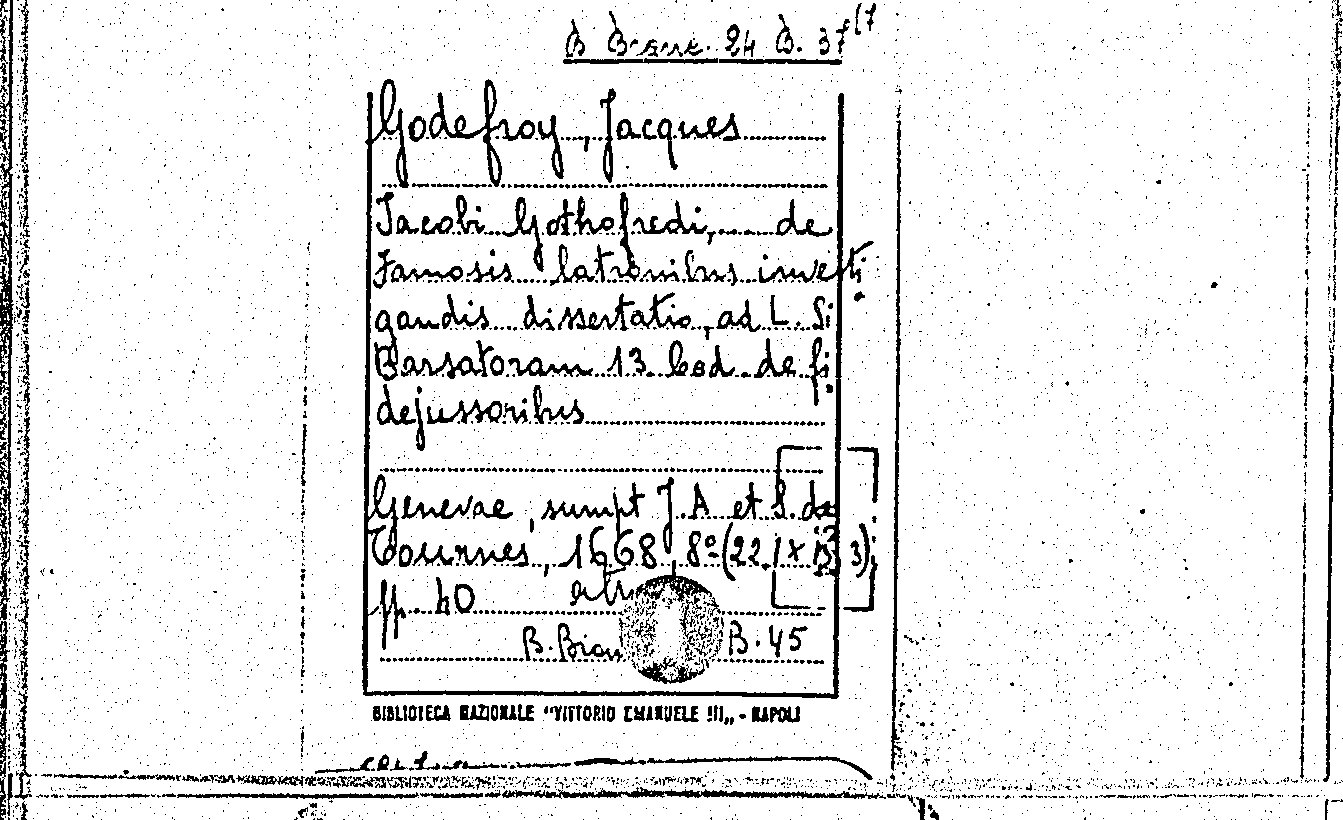 B Branc. 24 B. 37 (7
Godefroy, Jacques
Jacobi Gothofredi, ... de
Famosis latronibus investi
gandis dissertatio, ad L. Si
Barsatoram 13 Cod. de fi
dejussoribus
Genevae, sumpt J. A et S. de
Tournes, 1668, 8º (22.
pp. 40
B. B. 45
BIBLIOTECA NAZIONALE "VITTORIO EMANUELE III„ - NAPOLI